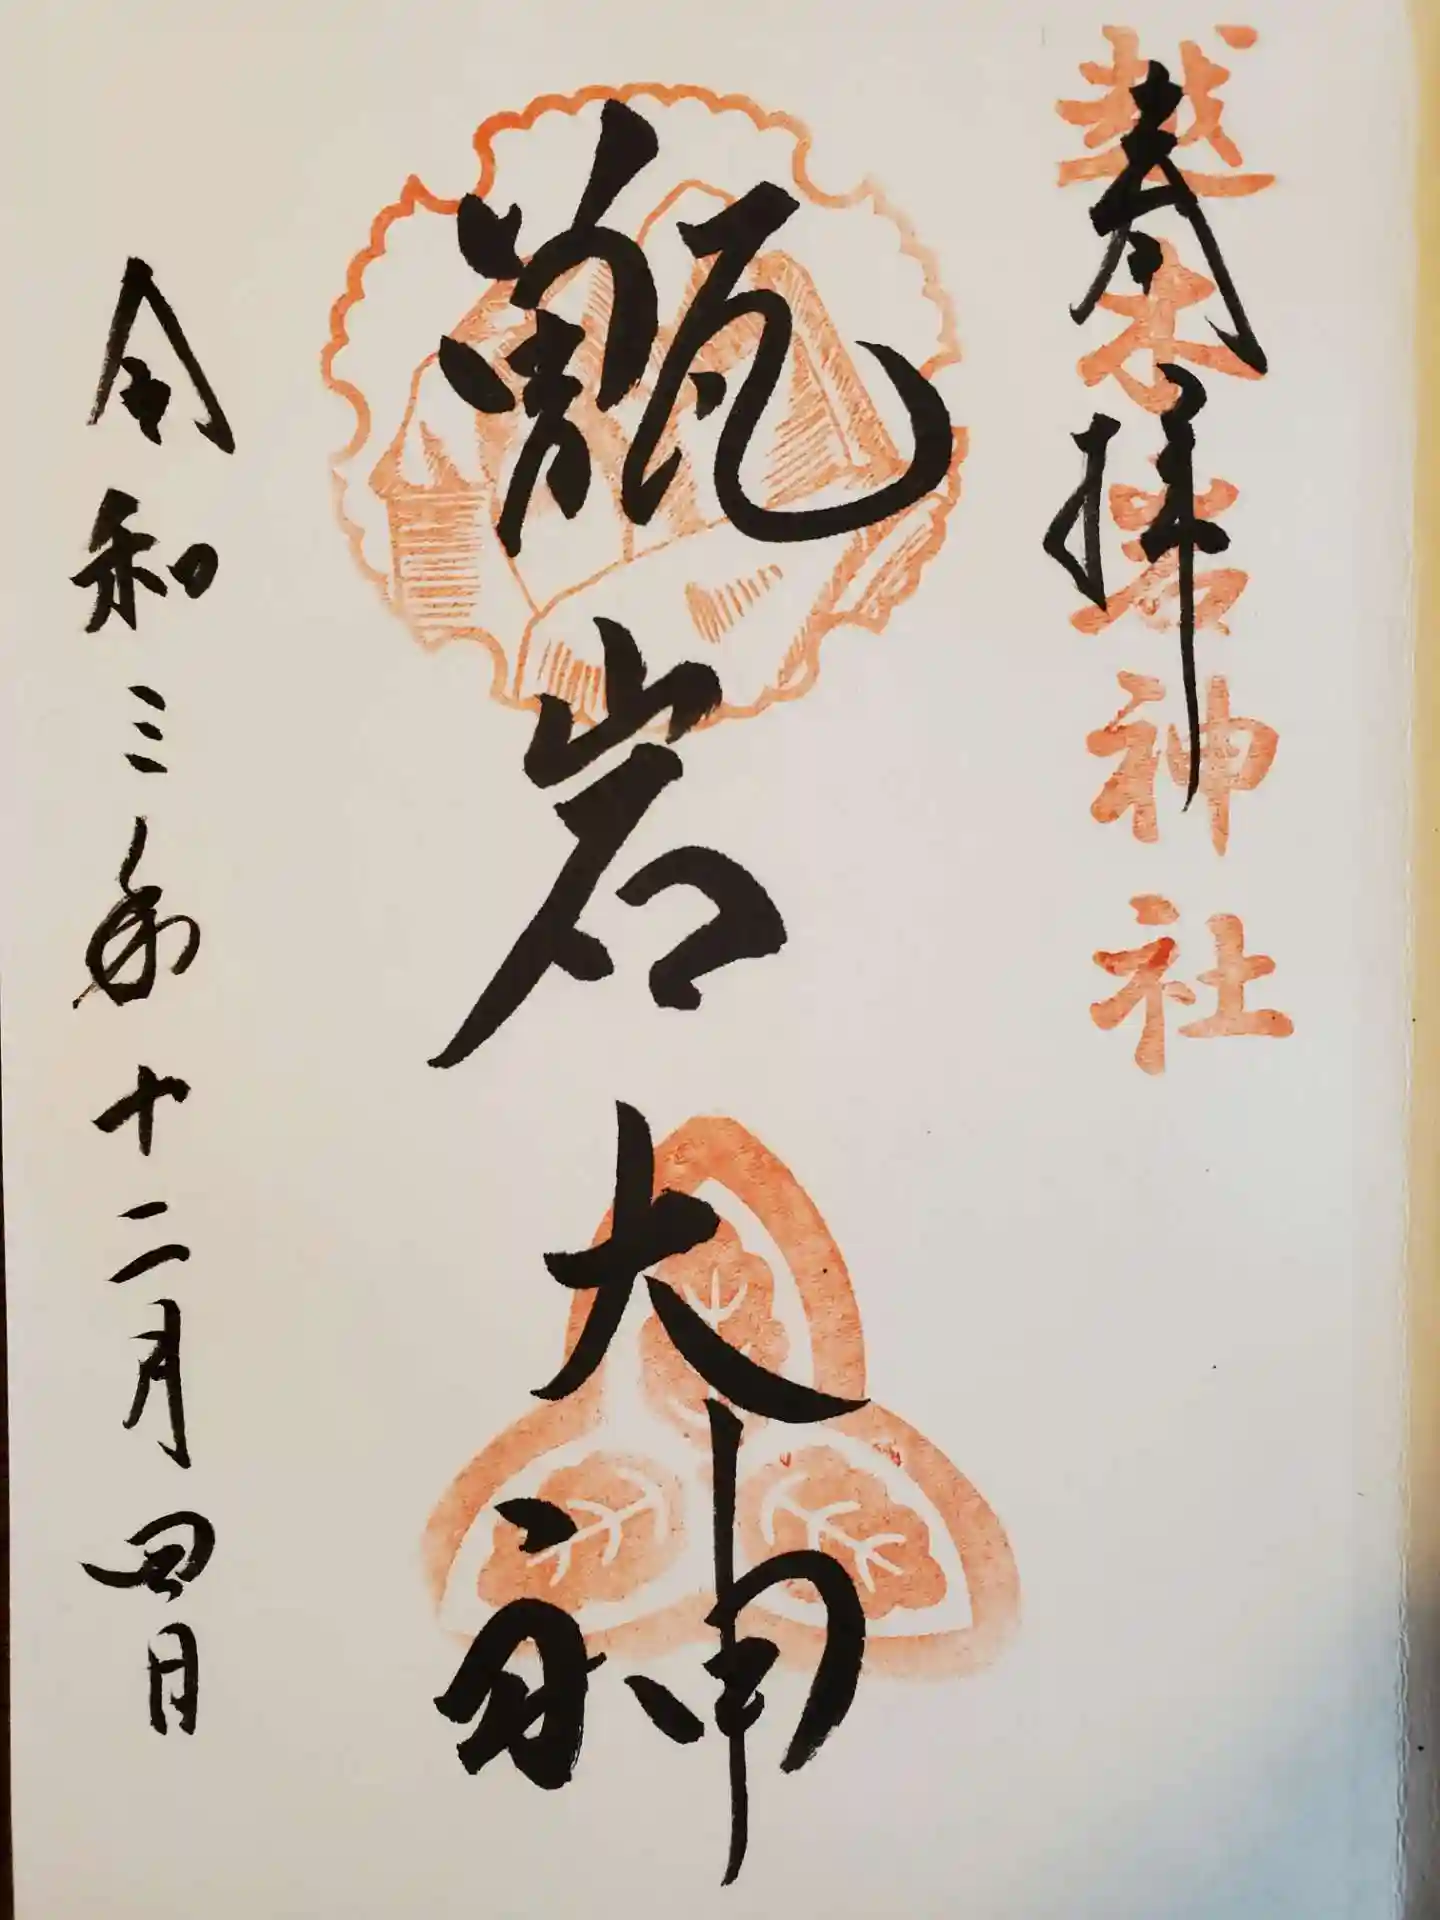 奉拝
越木岩神社
甑岩大神
令和三年十二月四日